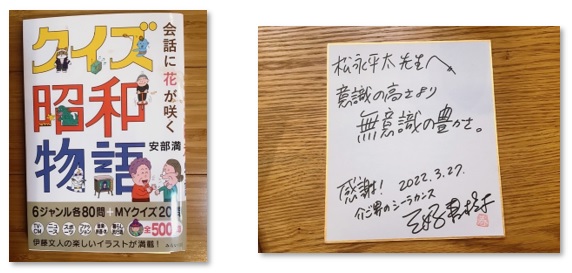 会話に花が咲く
クイズ
昭和
物語
安部満
6ジャンル各80問+MYクイズ20問
全500問
伊藤文人の楽しいイラストが満載!
松永平太先生へ
意識の高さより
無意識の豊かさ。
感謝! 2022.3.27.
介護界のシーラカンス